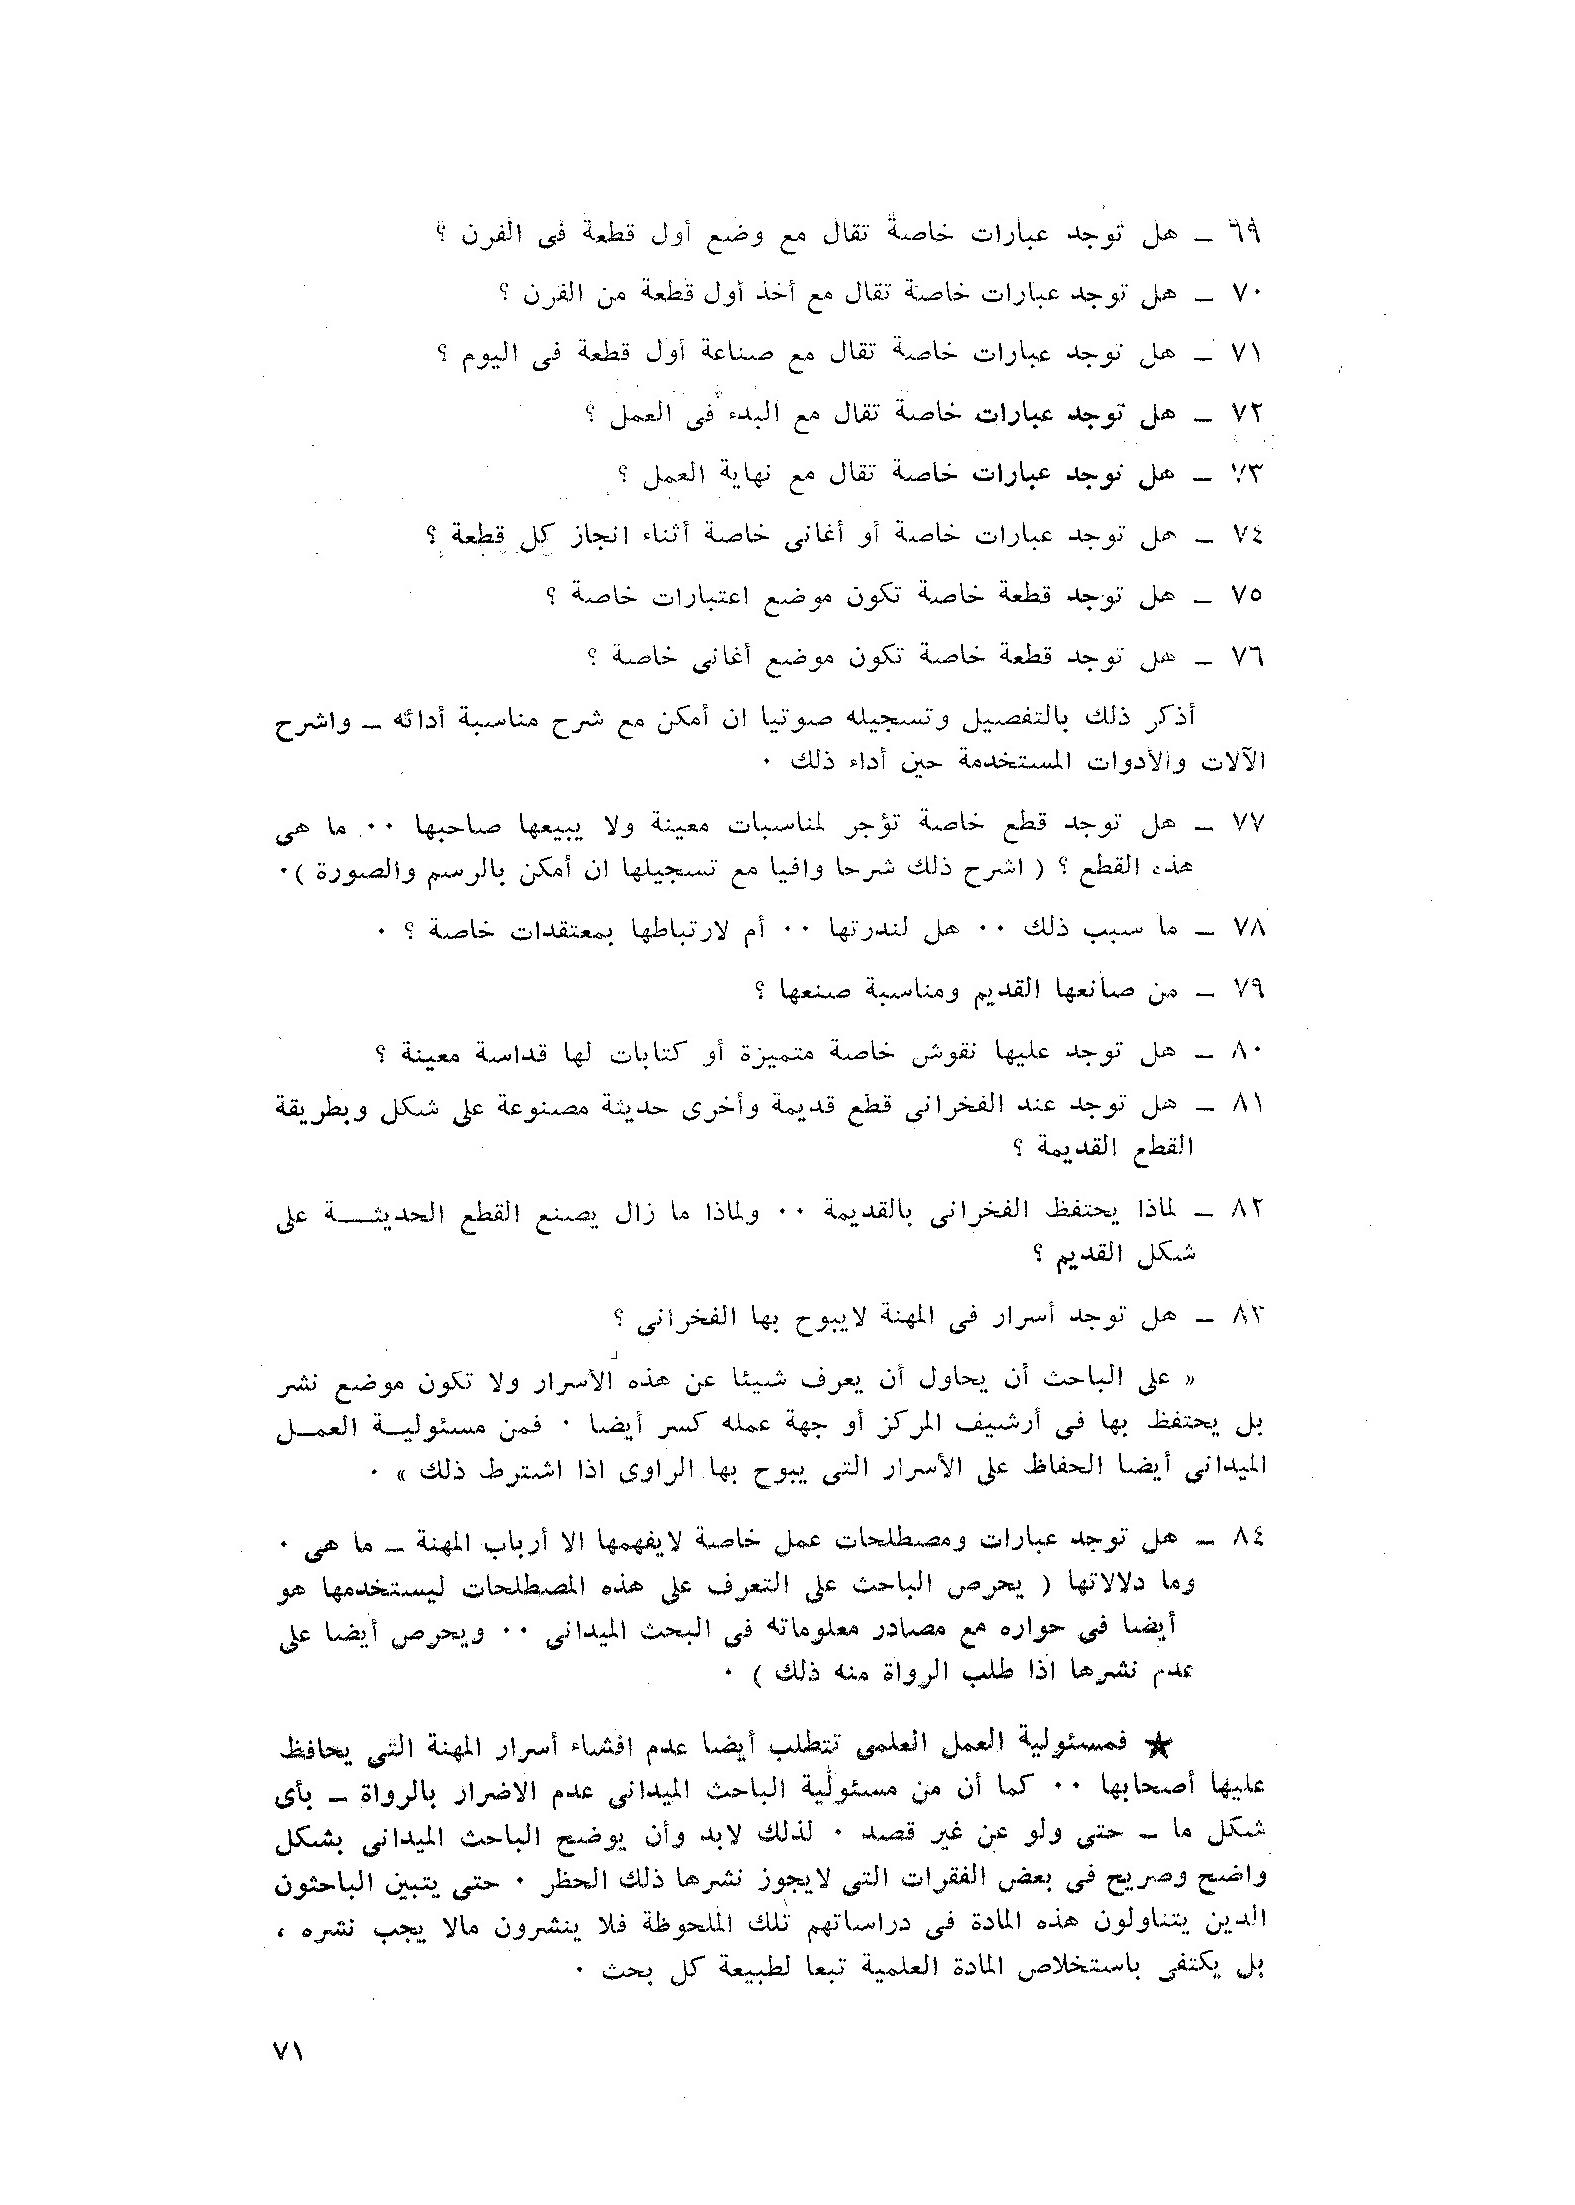 ٦٩ ـ هل توجد عبارات خاصة تقال مع وضع أول قطعة فى الفرن ؟
٧٠ ـ هل توجد عبارات خاصة تقال مع أخذ أول قطعة من الفرن ؟
٧١ ـ هل توجد عبارات خاصة تقال مع صناعة أول قطعة فى اليوم ؟
٧٢ ـ هل توجد عبارات خاصة تقال مع البدء فى العمل ؟
٧٣ ـ هل توجد عبارات خاصة تقال مع نهاية العمل ؟
٧٤ ـ هل توجد عبارات خاصة أو أغانى خاصة أثناء انجاز كل قطعة ؟
٧٥ ـ هل توجد قطعة خاصة تكون موضع اعتبارات خاصة ؟
٧٦ ـ هل توجد قطعة خاصة تكون موضع أغانى خاصة ؟
أذكر ذلك بالتفصيل وتسجيله صوتيا ان أمكن مع شرح مناسبة أدائه ـ واشرح
الآلات والأدوات المستخدمة حين أداء ذلك ٠
٧٧ ـ هل توجد قطع خاصة تؤجر لمناسبات معينة ولا يبيعها صاحبها ٠٠ ما هى
هذه القطع ؟ ( اشرح ذلك شرحا وافيا مع تسجيلها ان أمكن بالرسم والصورة )٠
٧٨ ـ ما سبب ذلك ٠٠ هل لندرتها ٠٠ أم لارتباطها بمعتقدات خاصة ؟ ٠
٧٩ ـ من صانعها القديم ومناسبة صنعها ؟
٨٠ ـ هل توجد عليها نقوش خاصة متميزة أو كتابات لها قداسة معينة ؟
٨١ ـ هل توجد عند الفخرانى قطع قديمة وأخرى حديثة مصنوعة على شكل وبطريقة
القطع القديمة ؟
٨٢ ـ لماذا يحتفظ الفخرانى بالقديمة ٠٠ ولماذا ما زال يصنع القطع الحديثـــة على
شكل القديم ؟
٨٣ ـ هل توجد أسرار فى المهنة لايبوح بها الفخرانى ؟
« على الباحث أن يحاول أن يعرف شيئا عن هذه الأسرار ولا تكون موضع نشر
بل يحتفظ بها فى أرشيف المركز أو جهة عمله كسر أيضا ٠ فمن مسئوليــة العمــل
الميدانى أيضا الحفاظ على الأسرار التى يبوح بها الراوى اذا اشترط ذلك » ٠
٨٤ ـ هل توجد عبارات ومصطلحات عمل خاصة لايفهمها الا أرباب المهنة ـ ما هى ٠
وما دلالاتها ( يحرص الباحث على التعرف على هذه المصطلحات ليستخدمها هو
أيضا فى حواره مع مصادر معلوماته فى البحث الميدانى ٠٠ ويحرص أيضا على
عدم نشرها اذا طلب الرواة منه ذلك ) ٠
★ فمسئولية العمل العلمى تتطلب أيضا عدم افشاء أسرار المهنة التى يحافظ
عليها أصحابها ٠٠ كما أن من مسئولية الباحث الميدانى عدم الاضرار بالرواة ـ بأى
شكل ما ـ حتى ولو عن غير قصد ٠ لذلك لابد وأن يوضح الباحث الميدانى بشكل
واضح وصريح فى بعض الفقرات التى لايجوز نشرها ذلك الحظر ٠ حتى يتبين الباحثون
الدين يتناولون هذه المادة فى دراساتهم تلك الملحوظة فلا ينشرون مالا يجب نشره ،
بل يكتفى باستخلاص المادة العلمية تبعا لطبيعة كل بحث ٠
٧١